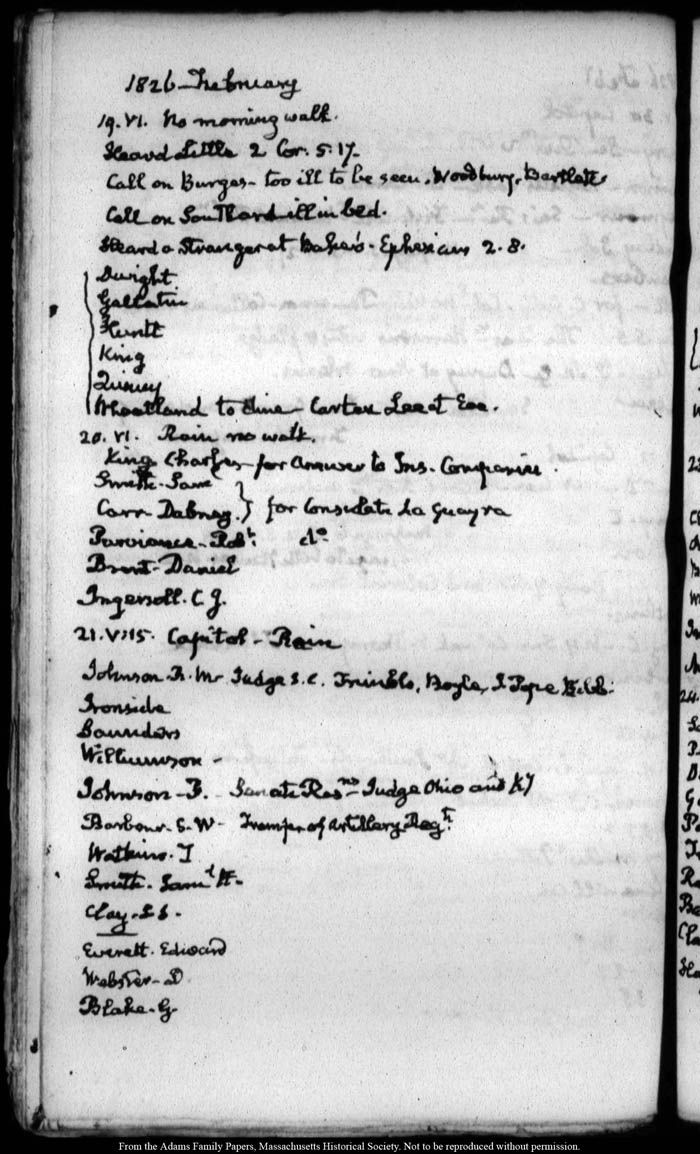 1826 - February
19. VI. No morning walk.
Heard Little 2 Cor. 5. 17.
Call on Burges - too ill to be seen. Woodbury. Bartlett
Call on Southard ill in bed.
Heard a Stranger at Baker's - Ephesians 2. 8.
Dwight
Gallatin
Huntt
King
Quincy
to dine - Carter Lee at Eve.
20. VI. Rain no walk.
King Charles - for answer to Ins. Companies
Smith - Saml
Carr Dabney. } for Consulate La Guayra
Purviance - Robt. do
Brent - Daniel
Ingersoll. C. J.
21. V: 15. Capitol - Rain
Johnson R. M. Judge S. C. Trimble, Boyle, J Pope
Ironside
Saunders
Williamson -
Johnson - F. Senate Resns - Judge Ohio and Ky
Barbour. S. W - Transfer of Artillery Regt.
Watkins. T
Smith. Saml H -
Clay.
Everett. Edward
Webster - D
Blake - G.
From the Adams Family Papers, Massachusetts Historical Society. Not to be reproduced without permission.